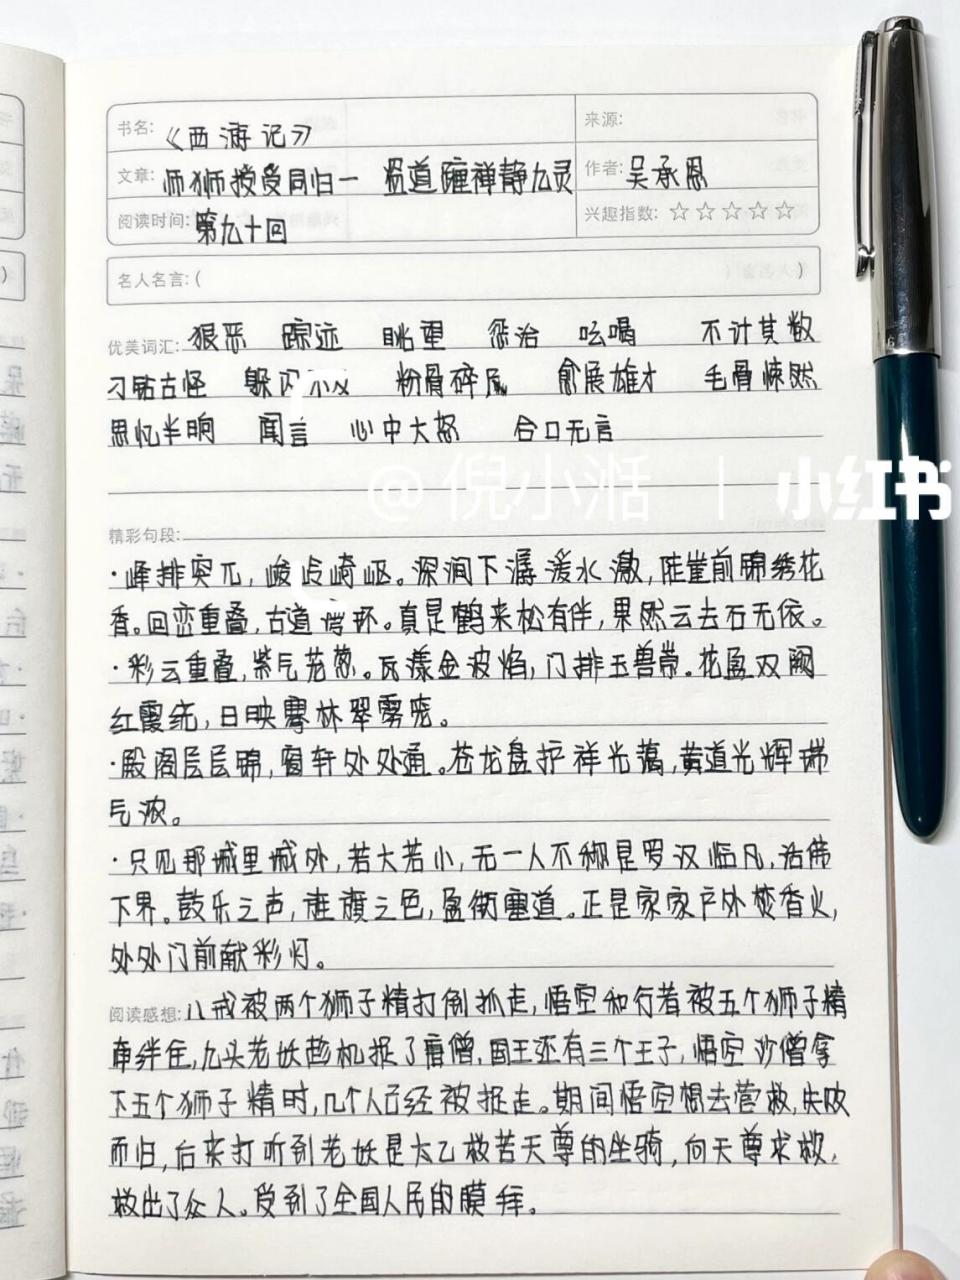 书名: 《西游记》 来源:
文章: 师狮授受同归一 盗道缠禅静九灵 作者: 吴承恩
阅读时间: 第九十回 兴趣指数: ☆☆☆☆☆
名人名言: ( )
优美词汇: 狠恶 踪迹 眺望 惩治 吆喝 不计其数
刁钻古怪 躲闪不及 粉骨碎 愈展雄才 毛骨悚然
思忆半晌 闻言 心中大怒 合口无言
@倪小湉 | 小红书
精彩句段:
·峰排突兀, 崎岖。深涧下潺湲水漱,陡崖前锦绣花
香。回峦重叠,古道湾环。真是鹤来松有伴,果然云去石无依。
·彩云重叠,紫气茏葱。瓦漾金波焰,门排玉兽崇。花盈双阙
红霞绕,日映骞林翠雾笼。
·殿阁层层锦,窗轩处处通。苍龙盘护祥光蔼,黄道光辉瑞
气浓。
·只见那城里城外,若大若小,无一人不称是罗汉临凡,活佛
下界。鼓乐之声,旌旗之色,盈街塞道。正是家家户外焚香火,
处处门前献彩灯。
阅读感想: 八戒被两个狮子精打倒抓走,悟空和行者被五个狮子精
牵绊住,九头老妖趁机捉了唐僧,国王还有三个王子,悟空沙僧拿
下五个狮子精时,几个人已经被捉走。期间悟空想去营救,失败
而归,后来打听到老妖是太乙救苦天尊的坐骑,向天尊求救,
救出了众人。受到了全国人民的膜拜。